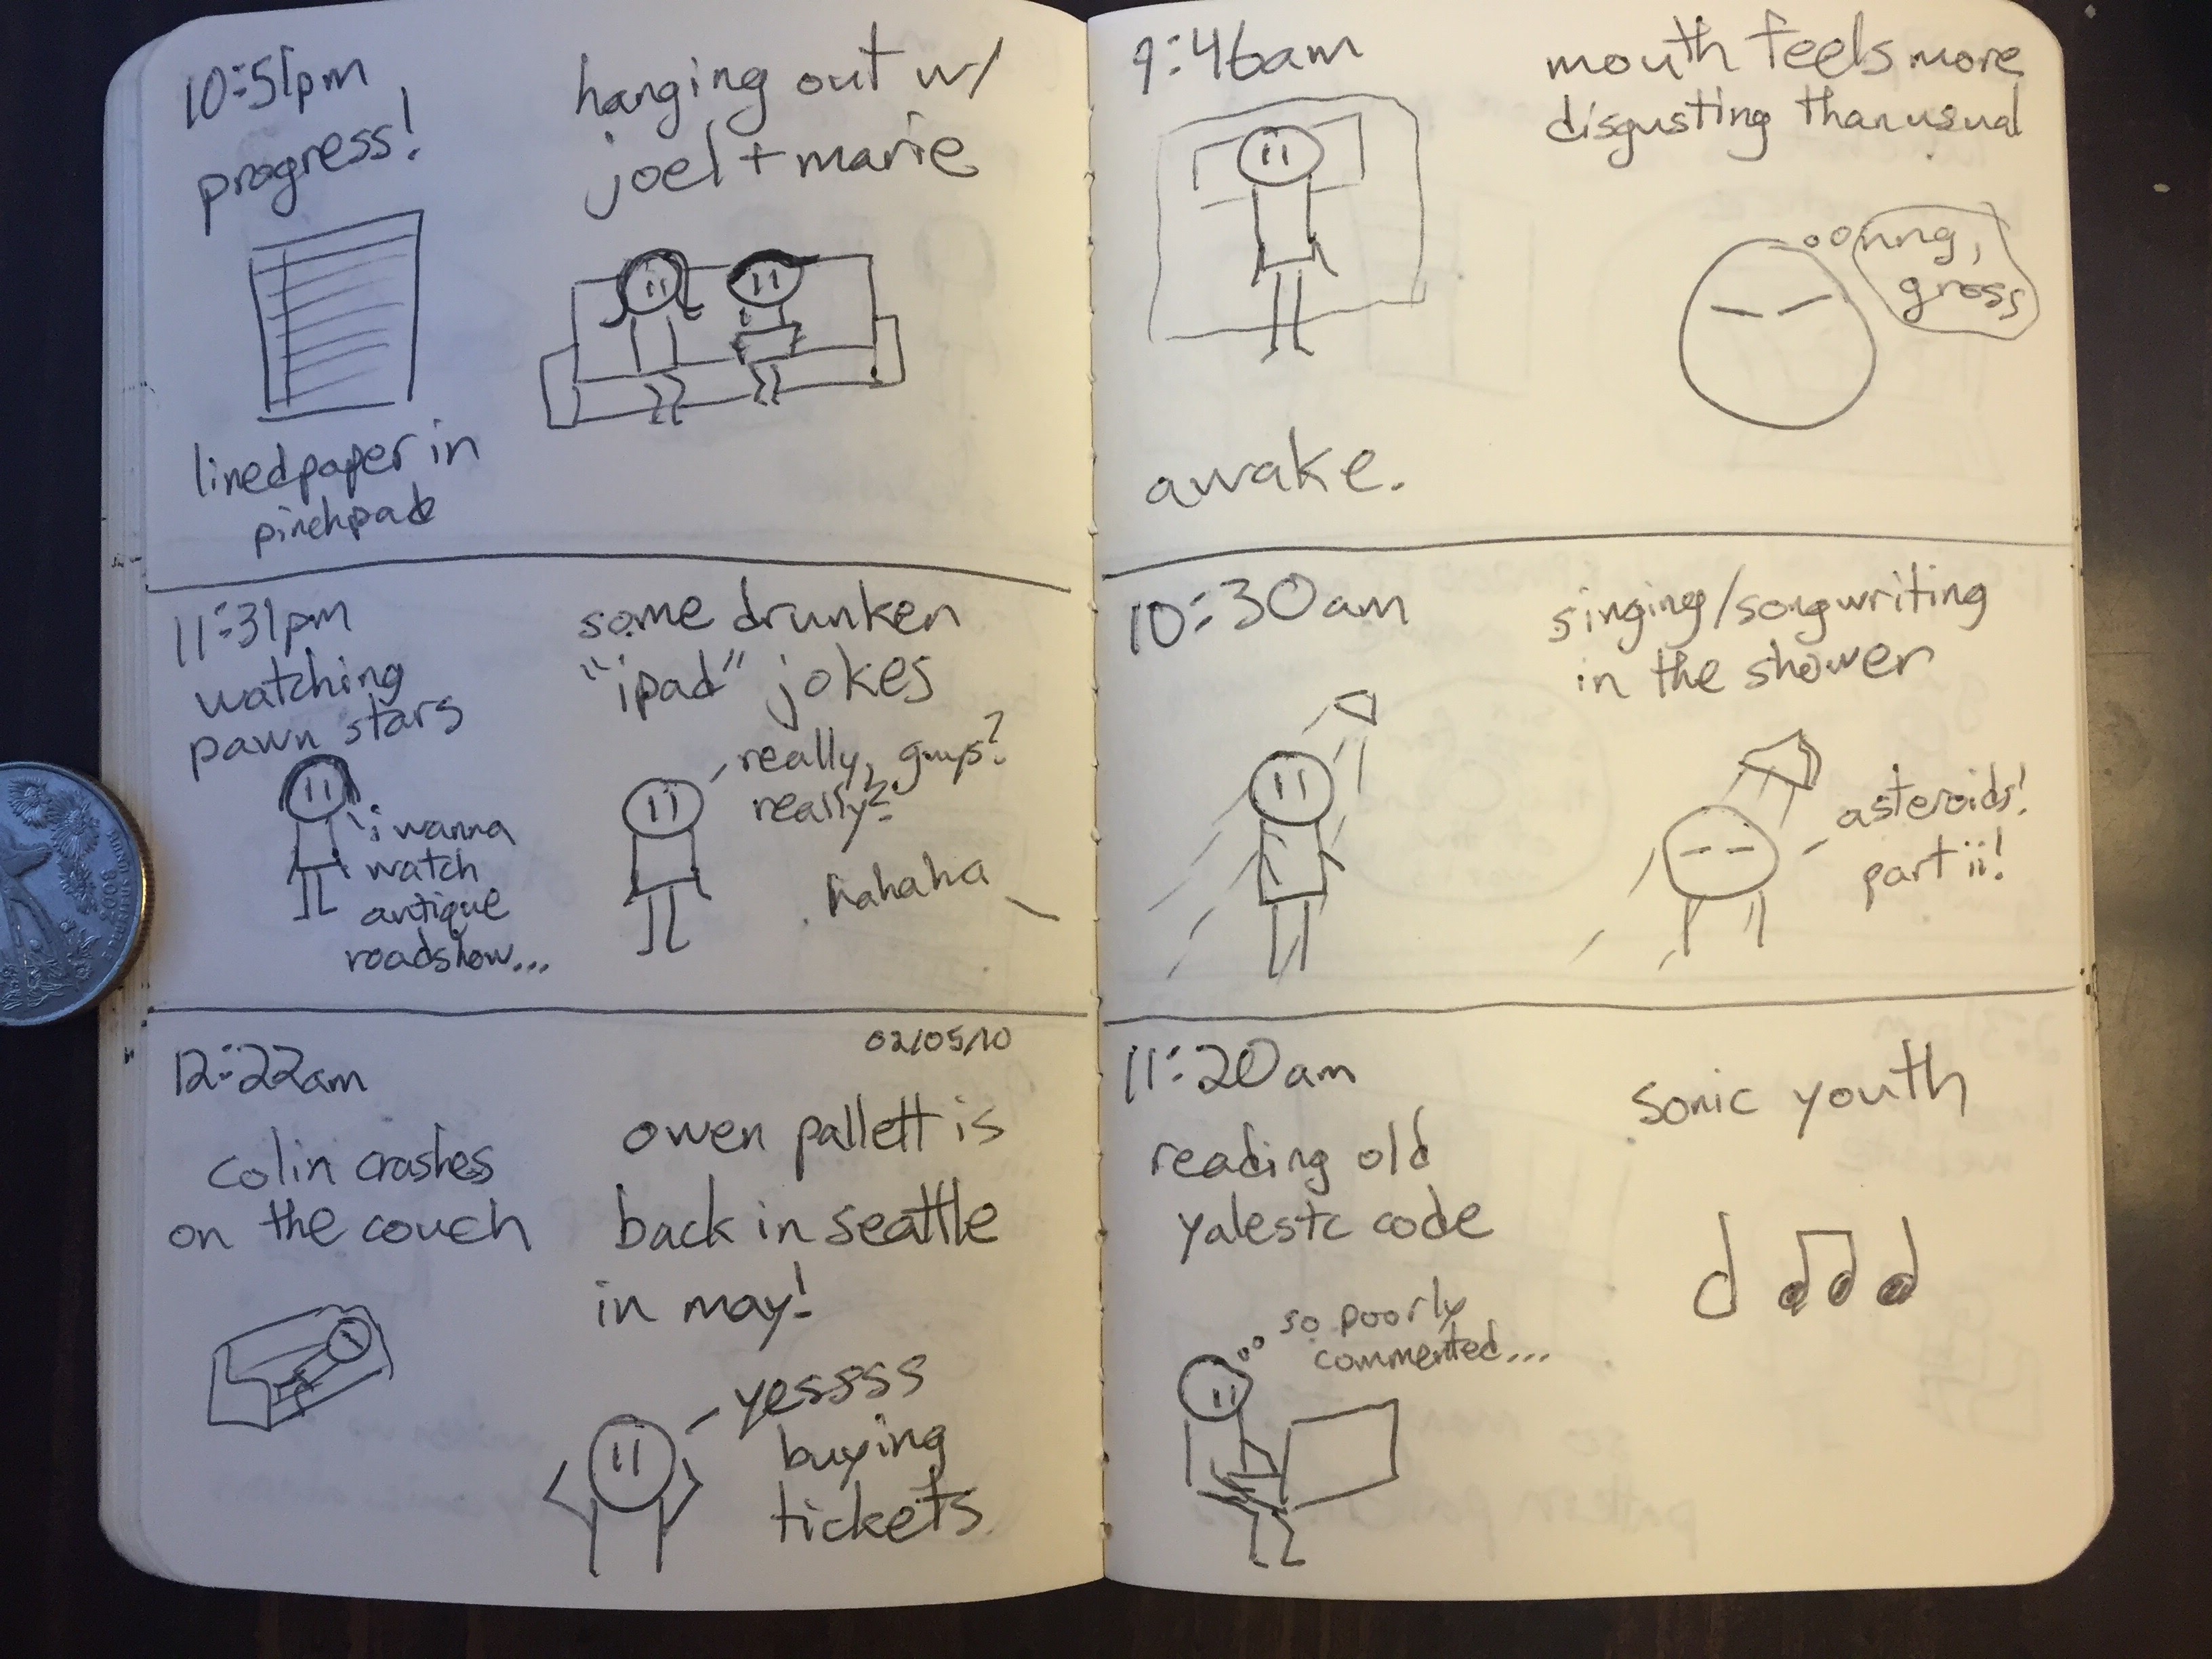 10:51pm
progress!
lined paper in
pinchpad
hanging out w/
joel + marie
11:31pm
watching
pawn stars
i wanna
watch
antique
roadshow...
some drunken
"ipad" jokes
really, guys?
really?
hahaha
02/05/10
12:22am
colin crashes
on the couch
owen pallett is
back in seattle
in may!
yessss
buying
tickets
9:46am
awake.
mouth feels more
disgusting than usual
nng,
gross
10:30am
singing/songwriting
in the shower
asteroids!
part ii!
11:20am
reading old
yalestc code
so poorly
commented...
sonic youth
2008